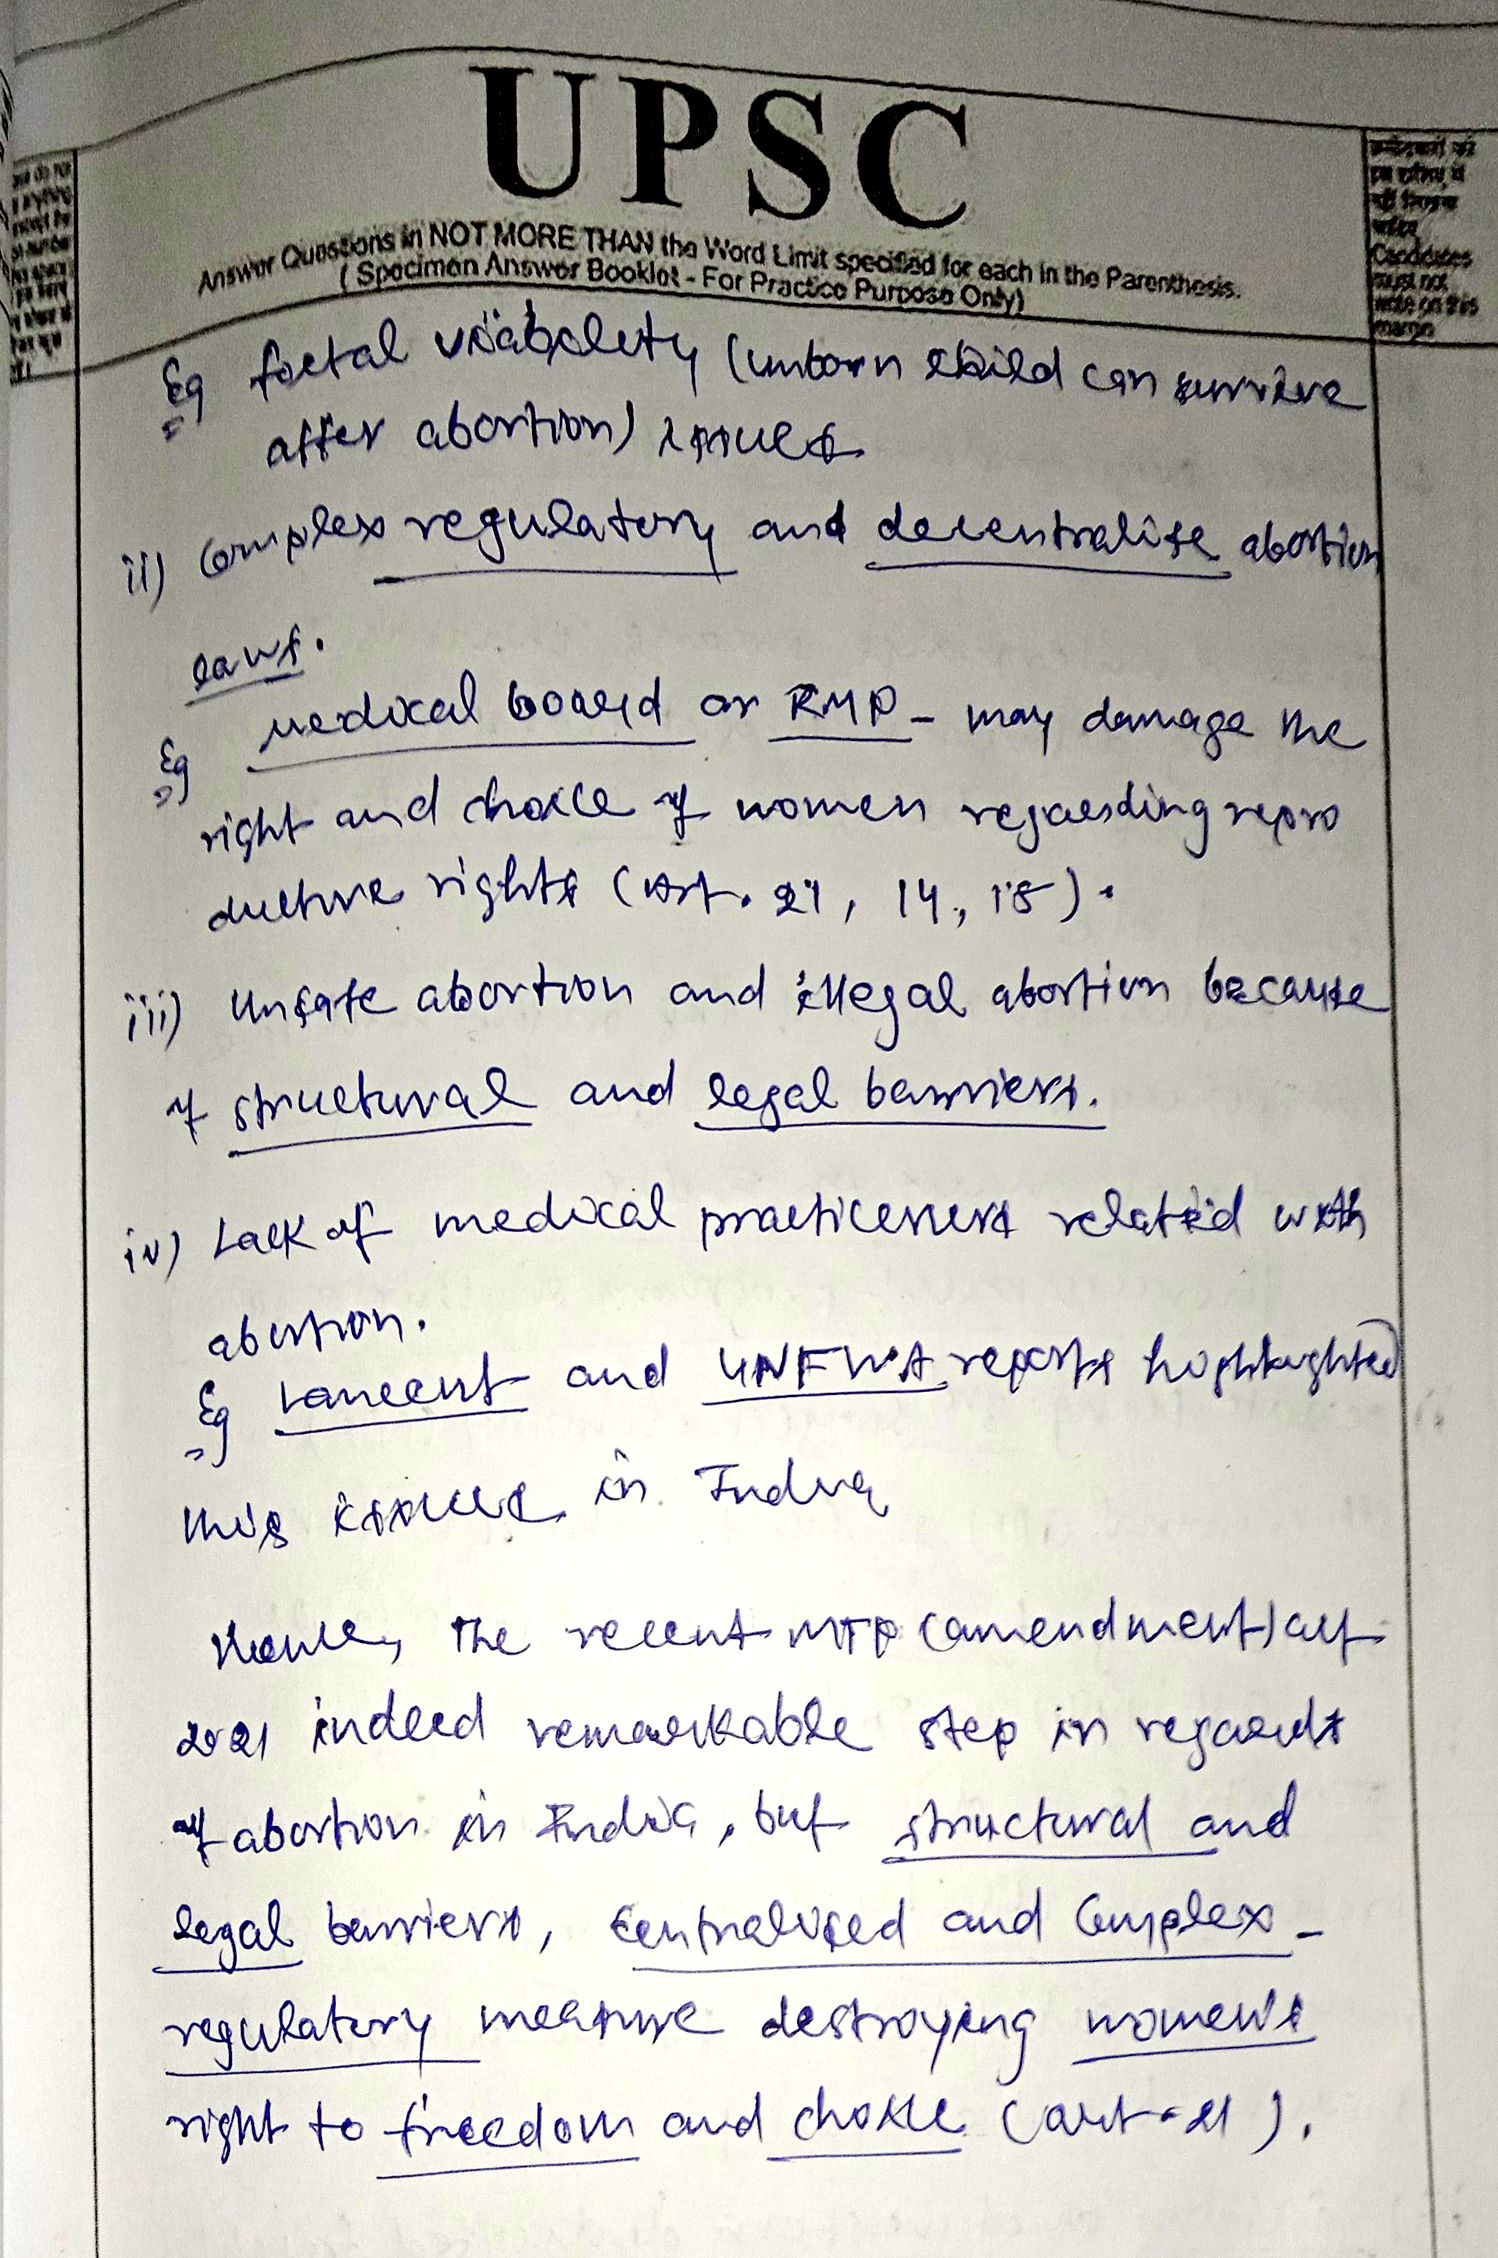 UPSC
Answer Questions in NOT MORE THAN the Word Limit specified for each in the Parenthesis.
( Specimen Answer Booklet - For Practice Purpose Only)
Candidates
must not
write on this
margin
Eg foetal viability (unborn child can survive
after abortion) issues
ii) Complex regulatory and decentralise abortion
laws.
Eg medical board or RMP - may damage the
right and choice of women regarding repro
ductive rights (Art. 21, 14, 15).
iii) Unsafe abortion and illegal abortion because
of structural and legal barriers.
iv) Lack of medical practiceners related with
abortion.
Eg Lancent and reports highlighted
this issues in India
Hence, the recent MTP (amendment) act
2021 indeed remarkable step in regards
of abortion in India, but structural and
legal barriers, centralised and Complex -
regulatory measure destroying women's
right to freedom and choice (art - 21).